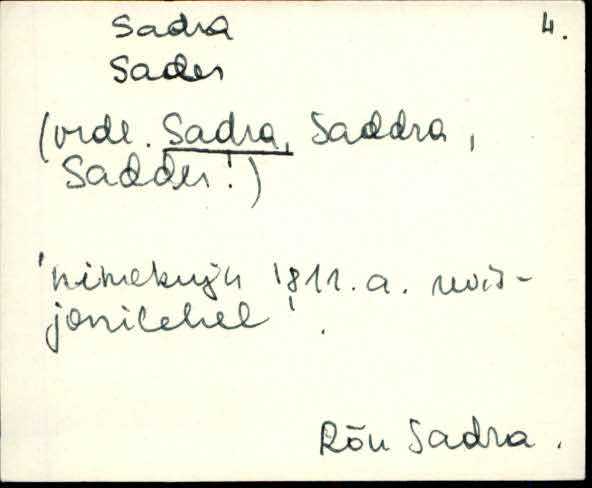 Sadra 4.
Sader
(vrdl. Sadra, Saddra,
Sadder!)
'nimekuju 1811. a. revis-
jonilehel'.
Rõu Sadra.